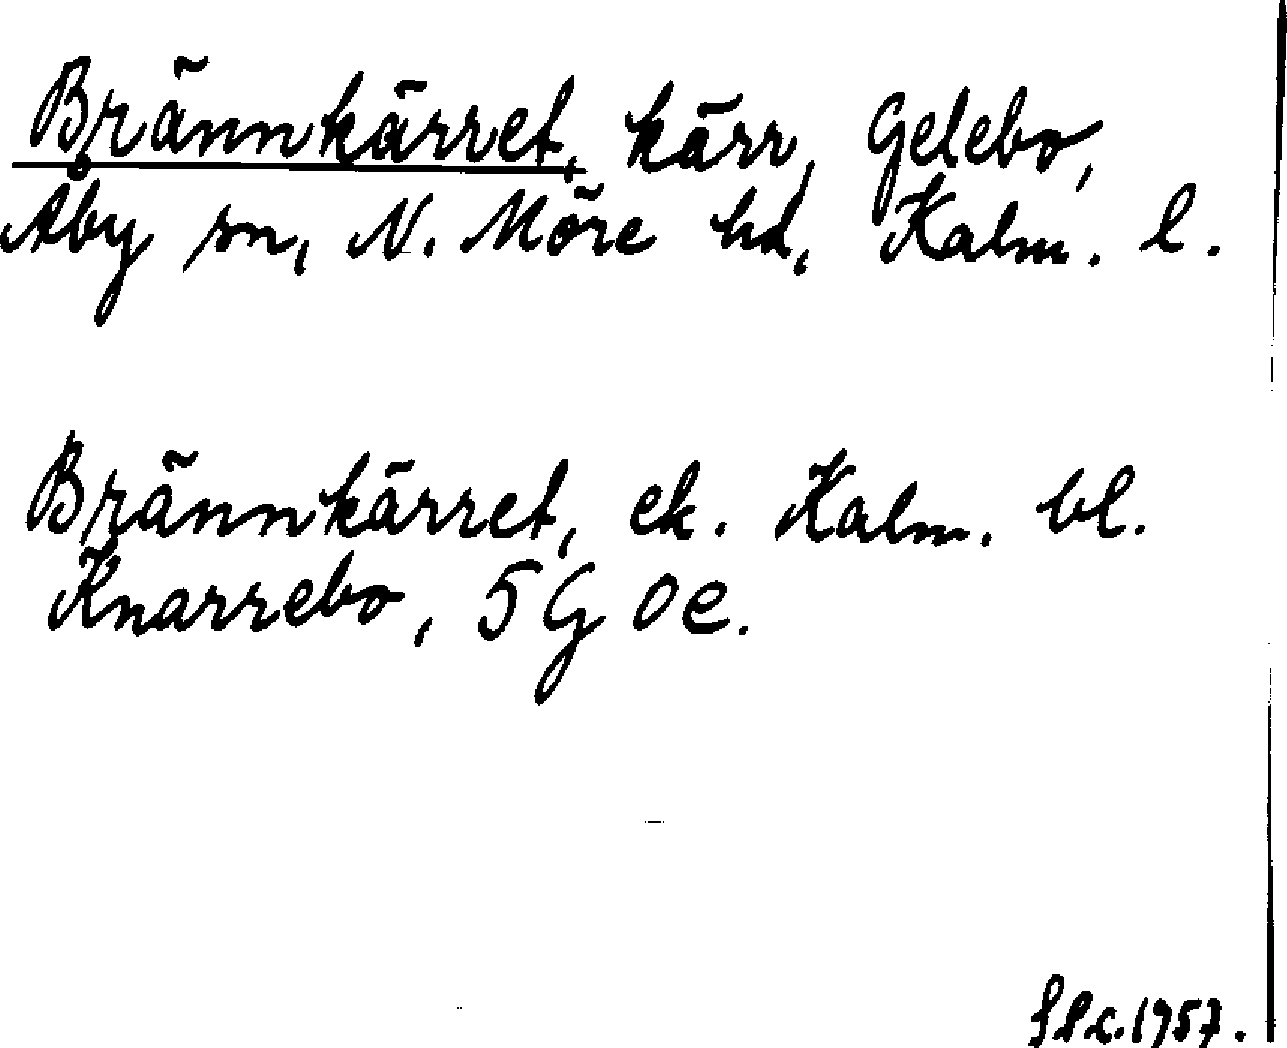 Brännkärret, kärr, Gelebo,
Åby sn, N. Möre hd, Kalm. l.
Brännkärret, ek. Kalm. bl.
Knarrebo, 5 G 0 e.
1957.